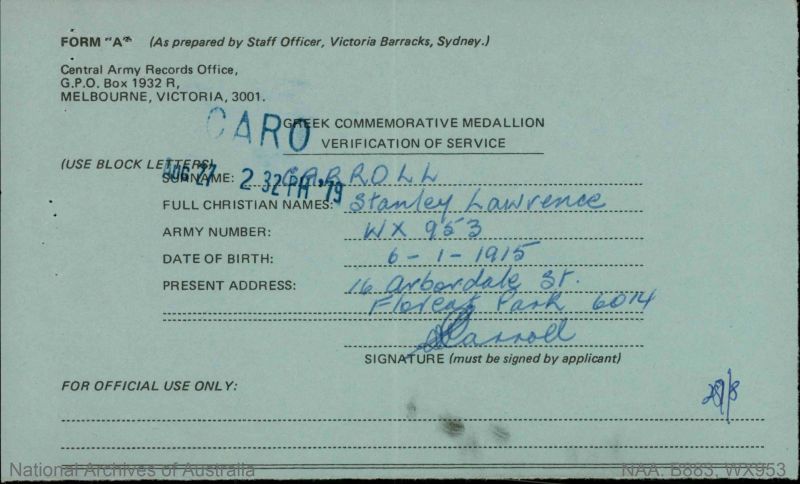 FORM "A" (As prepared by Staff Officer, Victoria Barracks, Sydney.)
Central Army Records Office,
G.P.O. Box 1932 R,
MELBOURNE, VICTORIA, 3001.
CARO
GREEK COMMEMORATIVE MEDALLION
VERIFICATION OF SERVICE
(USE BLOCK LETTERS)
AUG 27 2 32 PM '79
SURNAME: CARROLL
FULL CHRISTIAN NAMES: Stanley Lawrence
ARMY NUMBER: WX 953
DATE OF BIRTH: 6-1-1915
PRESENT ADDRESS: 16 Arbordale St.
Floreat Park 6014
SCarroll
SIGNATURE (must be signed by applicant)
FOR OFFICIAL USE ONLY:
National Archives of Australia NAA: B883, WX953